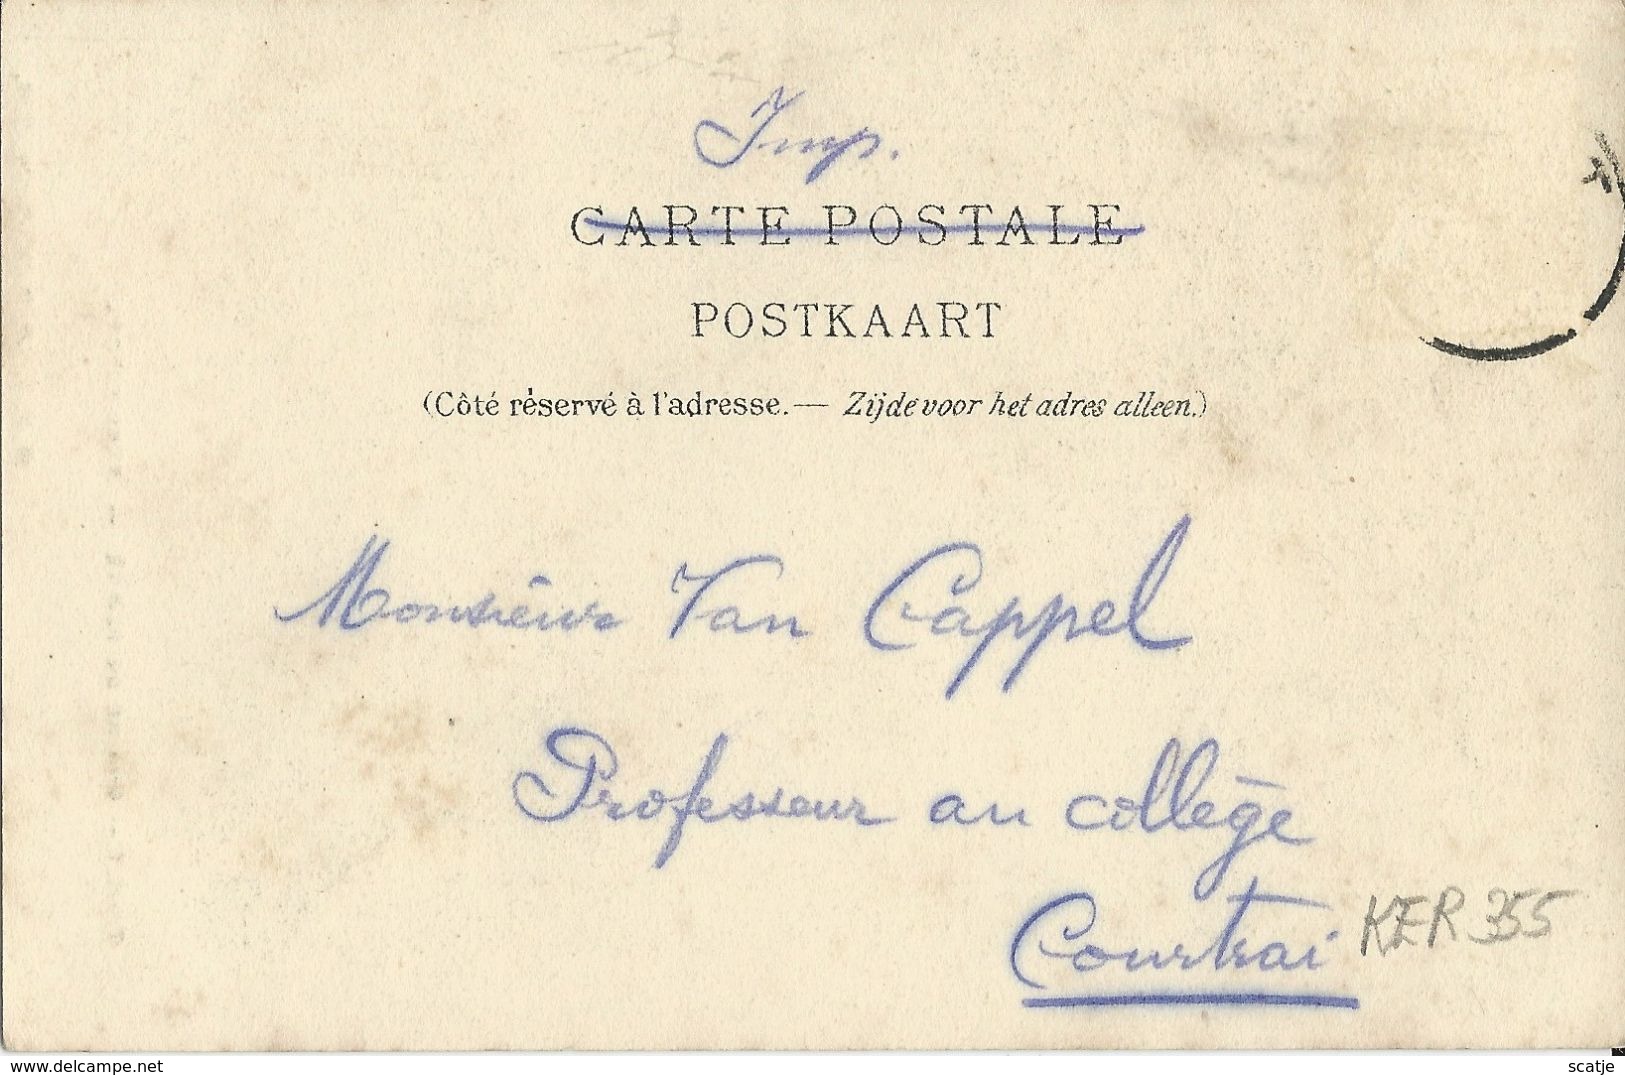 Imp.
CARTE POSTALE
POSTKAART
(Côté réservé à l'adresse.— Zijde voor het adres alleen.)
Monsieur Van Cappel
Professeur au collège
Courtrai
KER 355
www.delcampe.net
scatje